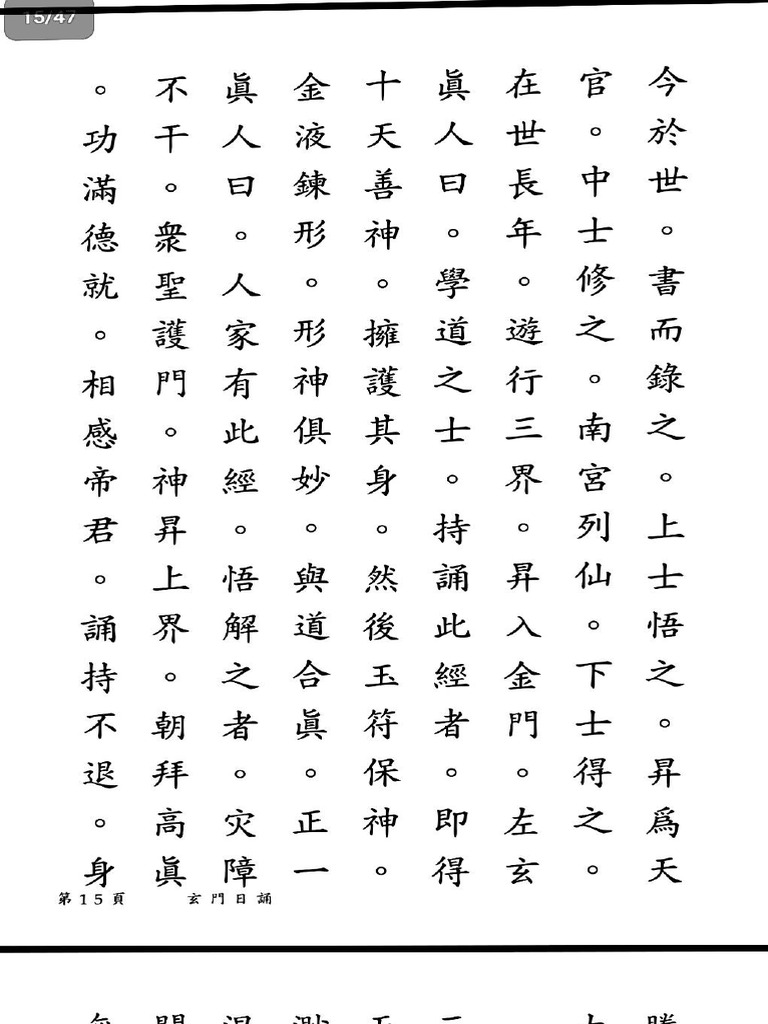 15/47
今於世。書而錄之。上士悟之。昇爲天
官。中士修之。南宮列仙。下士得之。
在世長年。遊行三界。昇入金門。左玄
眞人曰。學道之士。持誦此經者。即得
十天善神。擁護其身。然後玉符保神。
金液鍊形。形神俱妙。與道合眞。正一
眞人曰。人家有此經。悟解之者。灾障
不干。衆聖護門。神昇上界。朝拜高眞
。功滿德就。相感帝君。誦持不退。身
第15頁 玄門日誦